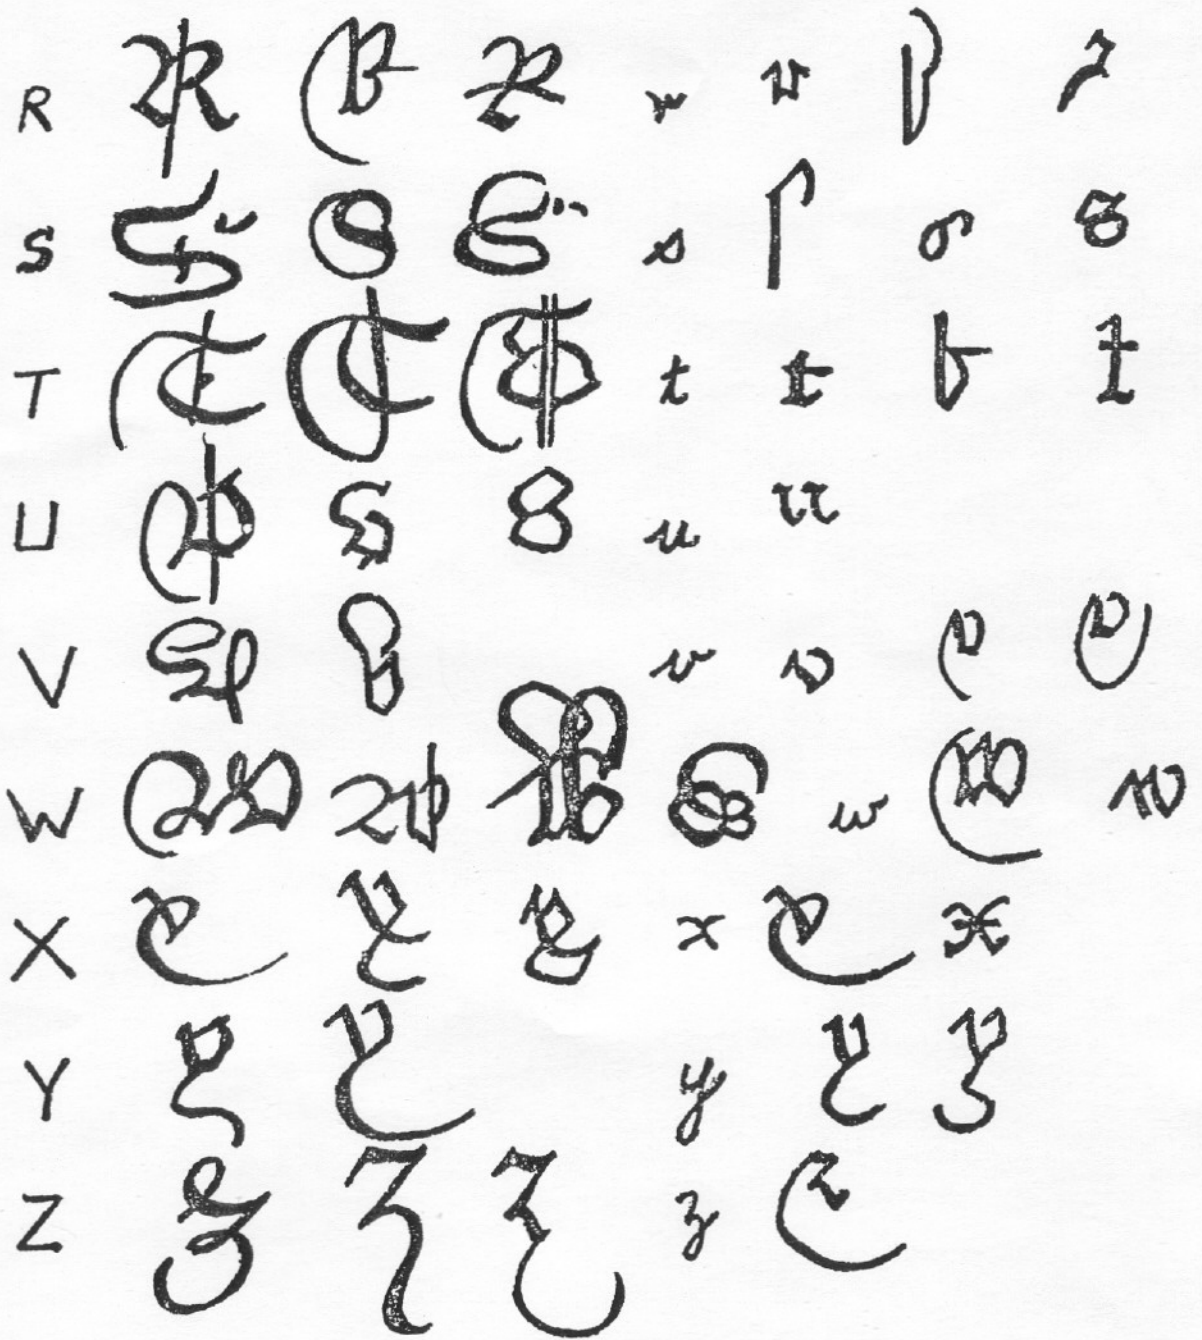 R R R R r r r r
S S S S s s s s
T T T T t t t t
U U U U u u
V V V v v v v
W W W W W w w w
X X X X x x x
Y Y Y y y y
Z Z Z Z z z